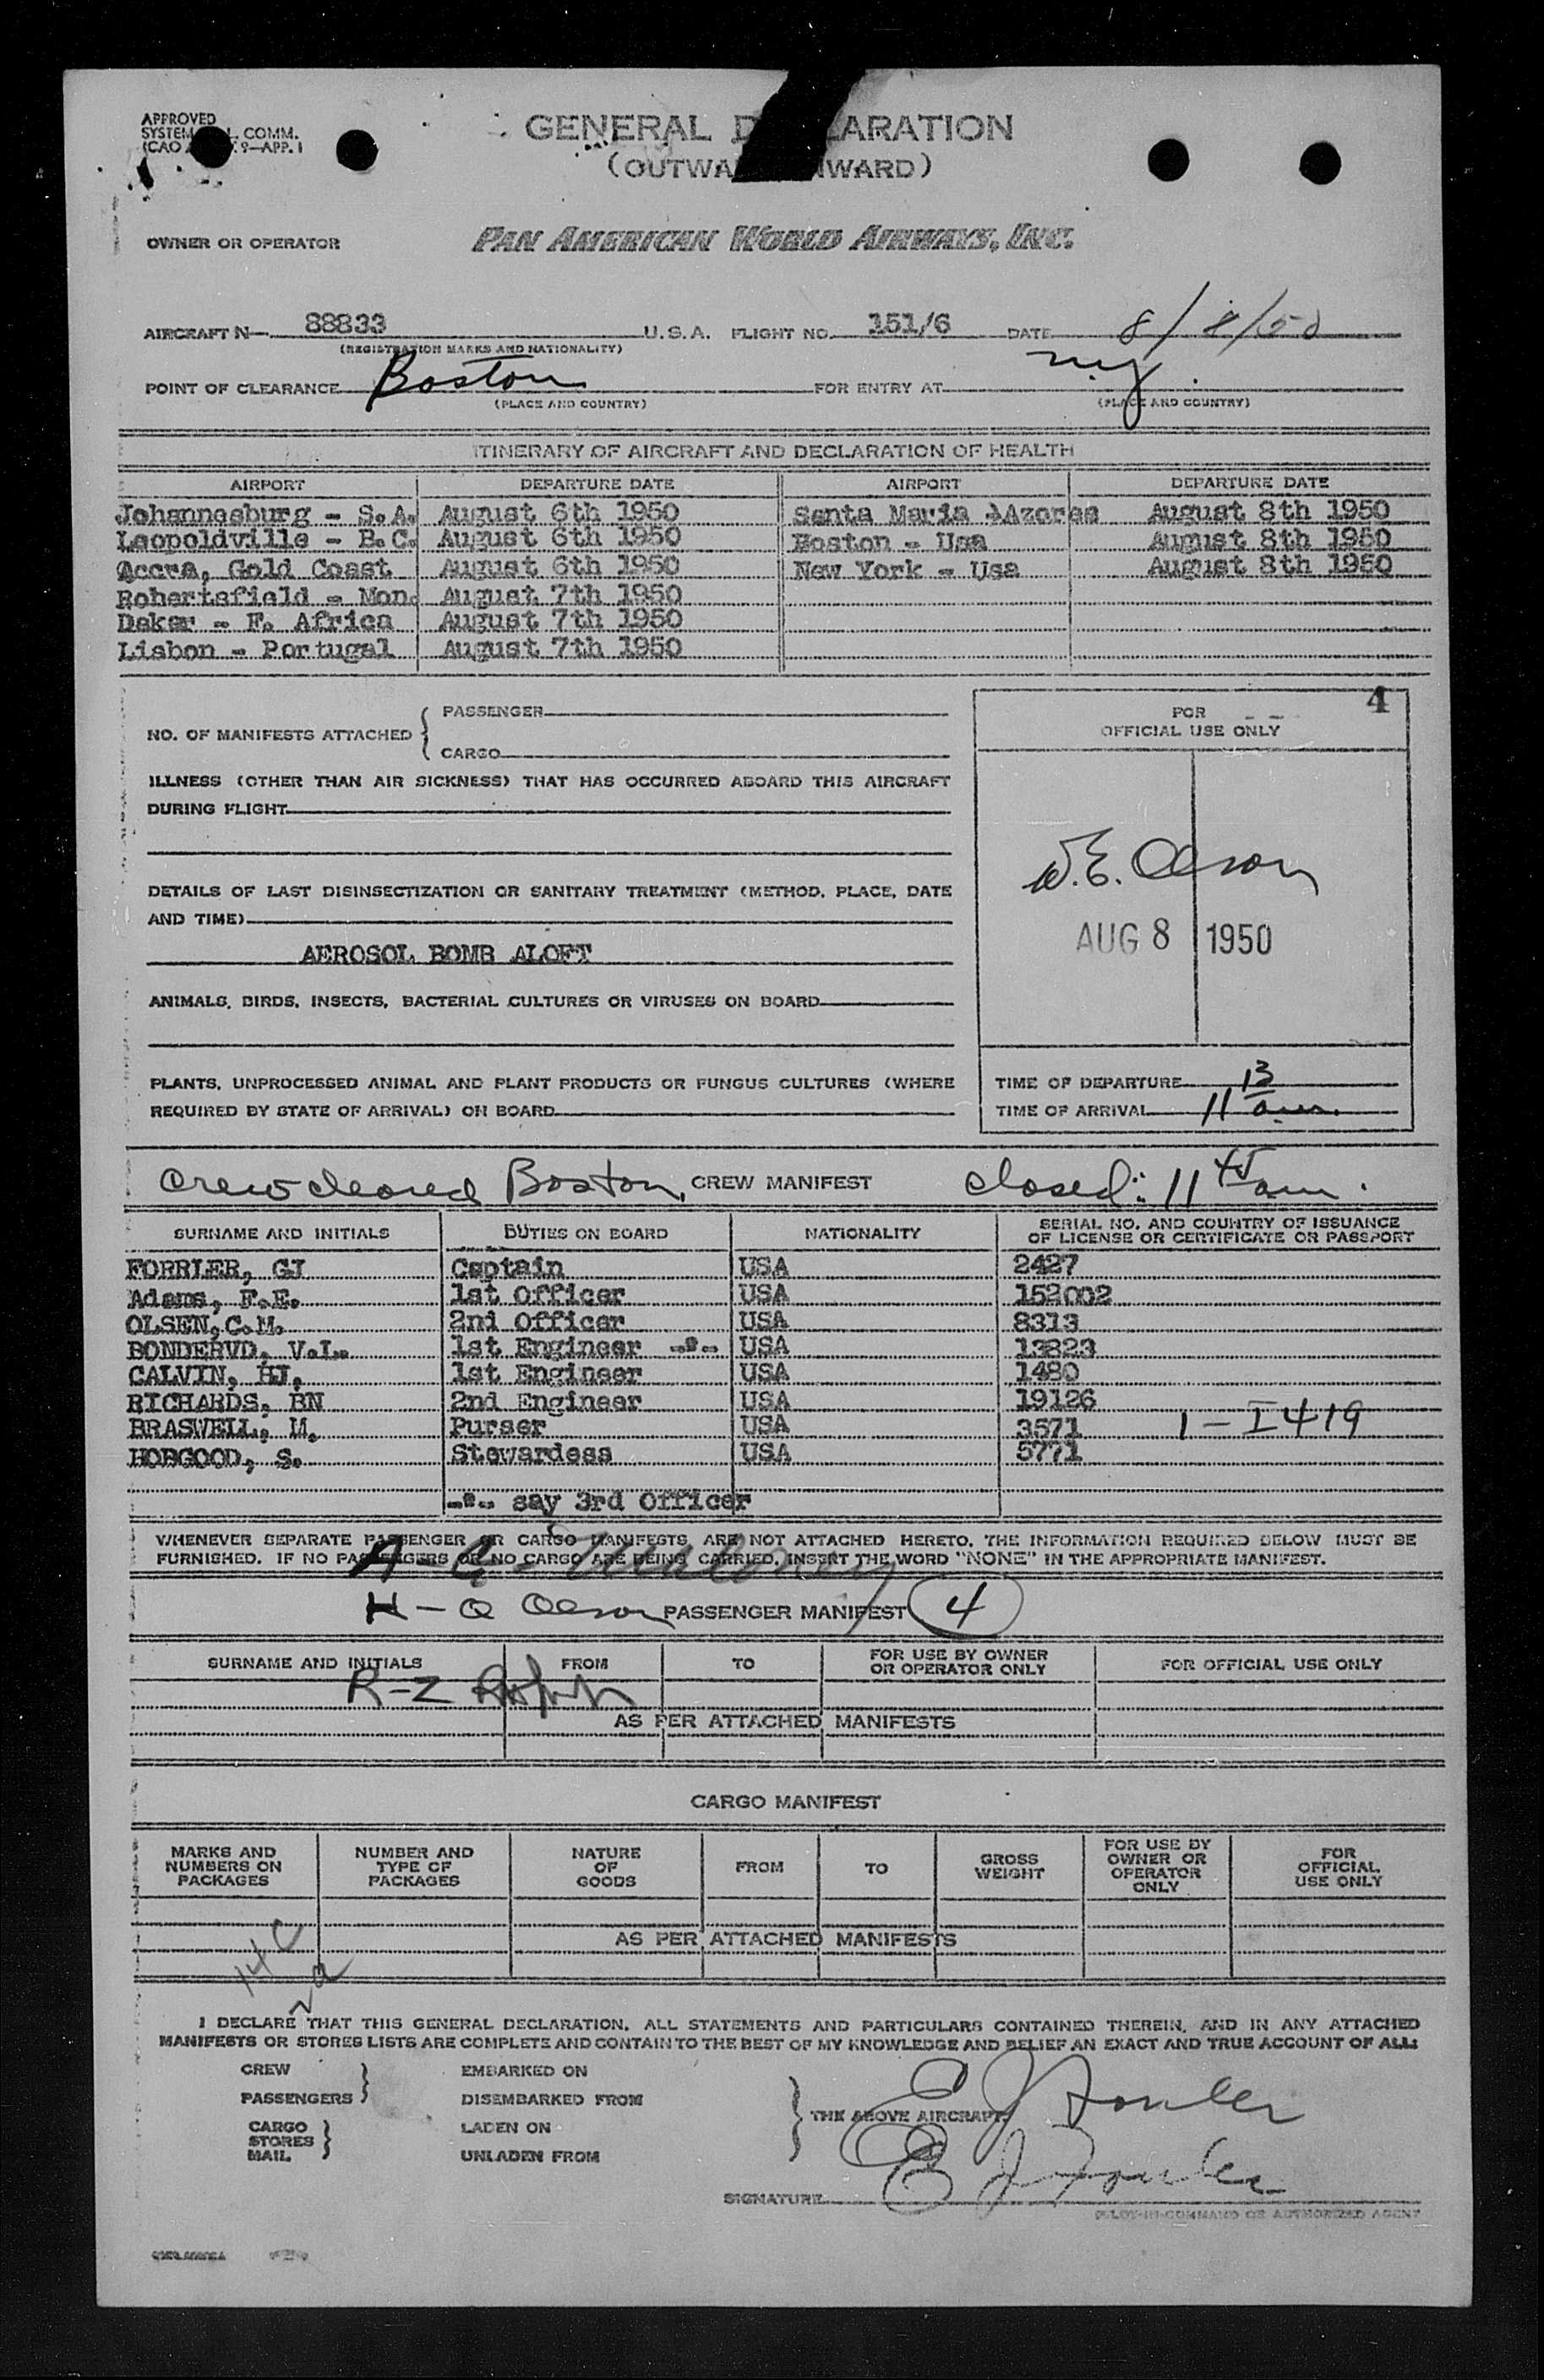 APPROVED
SYSTEM L. COMM.
(CAO 9—APP. 1
GENERAL D ARATION
(OUTWA NWARD)
OWNER OR OPERATOR PAN AMERICAN WORLD AIRWAYS, INC.
AIRCRAFT N— 88833 U.S.A. FLIGHT NO. 151/6 DATE 8/8/50
(REGISTRATION MARKS AND NATIONALITY)
POINT OF CLEARANCE Boston FOR ENTRY AT n.y.
(PLACE AND COUNTRY) (PLACE AND COUNTRY)
ITINERARY OF AIRCRAFT AND DECLARATION OF HEALTH
AIRPORT DEPARTURE DATE AIRPORT DEPARTURE DATE
Johannesburg - S.A. August 6th 1950 Santa Maria -Azores August 8th 1950
Leopoldville - B.C. August 6th 1950 Boston - Usa August 8th 1950
Accra, Gold Coast August 6th 1950 New York - Usa August 8th 1950
Robertsfield - Mon. August 7th 1950
Dakar - F. Africa August 7th 1950
Lisbon - Portugal August 7th 1950
NO. OF MANIFESTS ATTACHED { PASSENGER
CARGO
FOR
OFFICIAL USE ONLY
4
ILLNESS (OTHER THAN AIR SICKNESS) THAT HAS OCCURRED ABOARD THIS AIRCRAFT
DURING FLIGHT
W.E. Olson
DETAILS OF LAST DISINSECTIZATION OR SANITARY TREATMENT (METHOD, PLACE, DATE
AND TIME)
AUG 8 1950
AEROSOL BOMB ALOFT
ANIMALS, BIRDS, INSECTS, BACTERIAL CULTURES OR VIRUSES ON BOARD
PLANTS, UNPROCESSED ANIMAL AND PLANT PRODUCTS OR FUNGUS CULTURES (WHERE
REQUIRED BY STATE OF ARRIVAL) ON BOARD
TIME OF DEPARTURE
TIME OF ARRIVAL 11 13 am.
Crew cleared Boston, CREW MANIFEST closed: 11 45 am.
SURNAME AND INITIALS DUTIES ON BOARD NATIONALITY SERIAL NO. AND COUNTRY OF ISSUANCE
OF LICENSE OR CERTIFICATE OR PASSPORT
FORRLER, GJ Captain USA 2427
Adams, F.E. 1st Officer USA 152002
OLSEN, C.M. 2nd Officer USA 8313
BONDERVD, V.L. 1st Engineer -"- USA 13823
CALVIN, HJ, 1st Engineer USA 1480
RICHARDS, BN 2nd Engineer USA 19126
BRASWELL, M. Purser USA 3571 1 — I 419
HOBGOOD, S. Stewardess USA 5771
-"- say 3rd Officer
WHENEVER SEPARATE PASSENGER OR CARGO MANIFESTS ARE NOT ATTACHED HERETO, THE INFORMATION REQUIRED BELOW MUST BE
FURNISHED. IF NO PASSENGERS OR NO CARGO ARE BEING CARRIED, INSERT THE WORD "NONE" IN THE APPROPRIATE MANIFEST.
A - G -
H - Q Olson PASSENGER MANIFEST 4
SURNAME AND INITIALS FROM TO FOR USE BY OWNER
OR OPERATOR ONLY FOR OFFICIAL USE ONLY
R - Z
AS PER ATTACHED MANIFESTS
CARGO MANIFEST
MARKS AND
NUMBERS ON
PACKAGES
NUMBER AND
TYPE OF
PACKAGES
NATURE
OF
GOODS
FROM
TO
GROSS
WEIGHT
FOR USE BY
OWNER OR
OPERATOR
ONLY
FOR
OFFICIAL
USE ONLY
AS PER ATTACHED MANIFESTS
14 c
2 a
I DECLARE THAT THIS GENERAL DECLARATION, ALL STATEMENTS AND PARTICULARS CONTAINED THEREIN, AND IN ANY ATTACHED
MANIFESTS OR STORES LISTS ARE COMPLETE AND CONTAIN TO THE BEST OF MY KNOWLEDGE AND BELIEF AN EXACT AND TRUE ACCOUNT OF ALL:
CREW EMBARKED ON
PASSENGERS DISEMBARKED FROM
CARGO LADEN ON
STORES
MAIL UNLADEN FROM
THE ABOVE AIRCRAFT.
E J Fowler
SIGNATURE E J Fowler
PILOT-IN-COMMAND OR AUTHORIZED AGENT